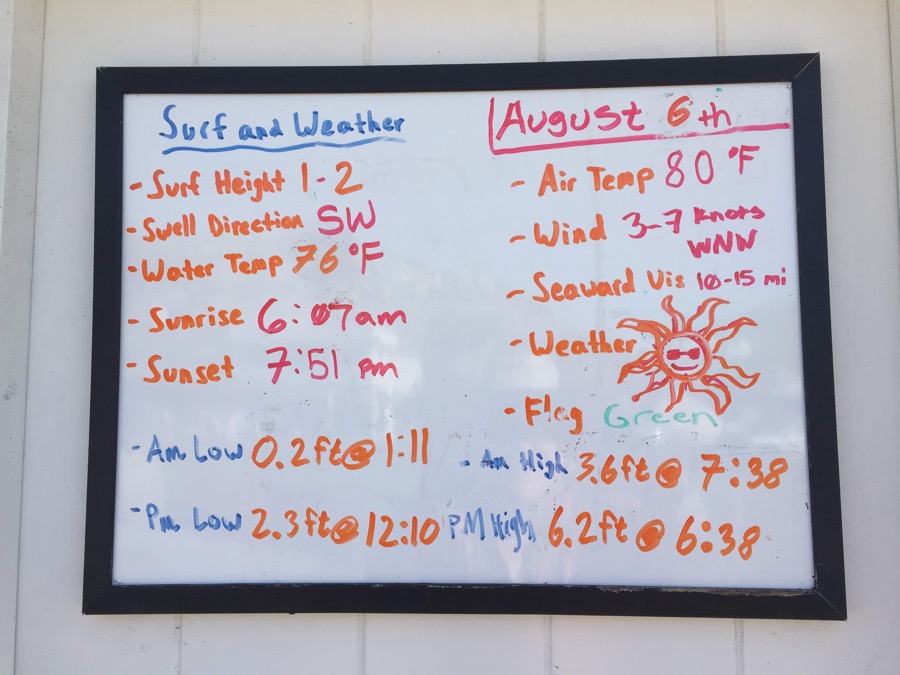 Surf and Weather
August 6th
- Surf Height 1-2
- Swell Direction SW
- Water Temp 76°F
- Sunrise 6:07am
- Sunset 7:51 pm
- Air Temp 80°F
- Wind 3-7 knots
WNW
- Seaward Vis 10-15 mi
- Weather
- Flag Green
- Am Low 0.2ft@ 1:11
- Am High 3.6ft @ 7:38
- Pm Low 2.3ft@ 12:10
PM High 6.2ft @ 6:38